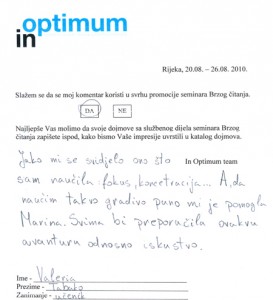 optimum
in
Rijeka, 20.08. – 26.08. 2010.
Slažem se da se moj komentar koristi u svrhu promocije seminara Brzog čitanja.
DA NE
Najljepše Vas molimo da svoje dojmove sa službenog dijela seminara Brzog
čitanja zapišete ispod, kako bismo Vaše impresije uvrstili u katalog dojmova.
In Optimum team
Jako mi se svidjelo ono što
sam naučila fokus, koncetracija... A, da
naučim takvo gradivo puno mi je pomogla
Marina. Svima bi preporučila ovakvu
avanturu odnosno iskustvo.
Ime - Valeria
Prezime - Tabako
Zanimanje - učenik